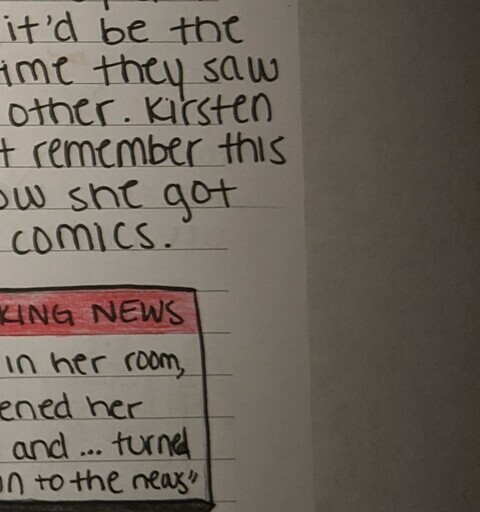 it'd be the
ime they saw
other. Kirsten
t remember this
ow she got
comics.
KING NEWS
in her room,
ened her
and... turned
on to the news"